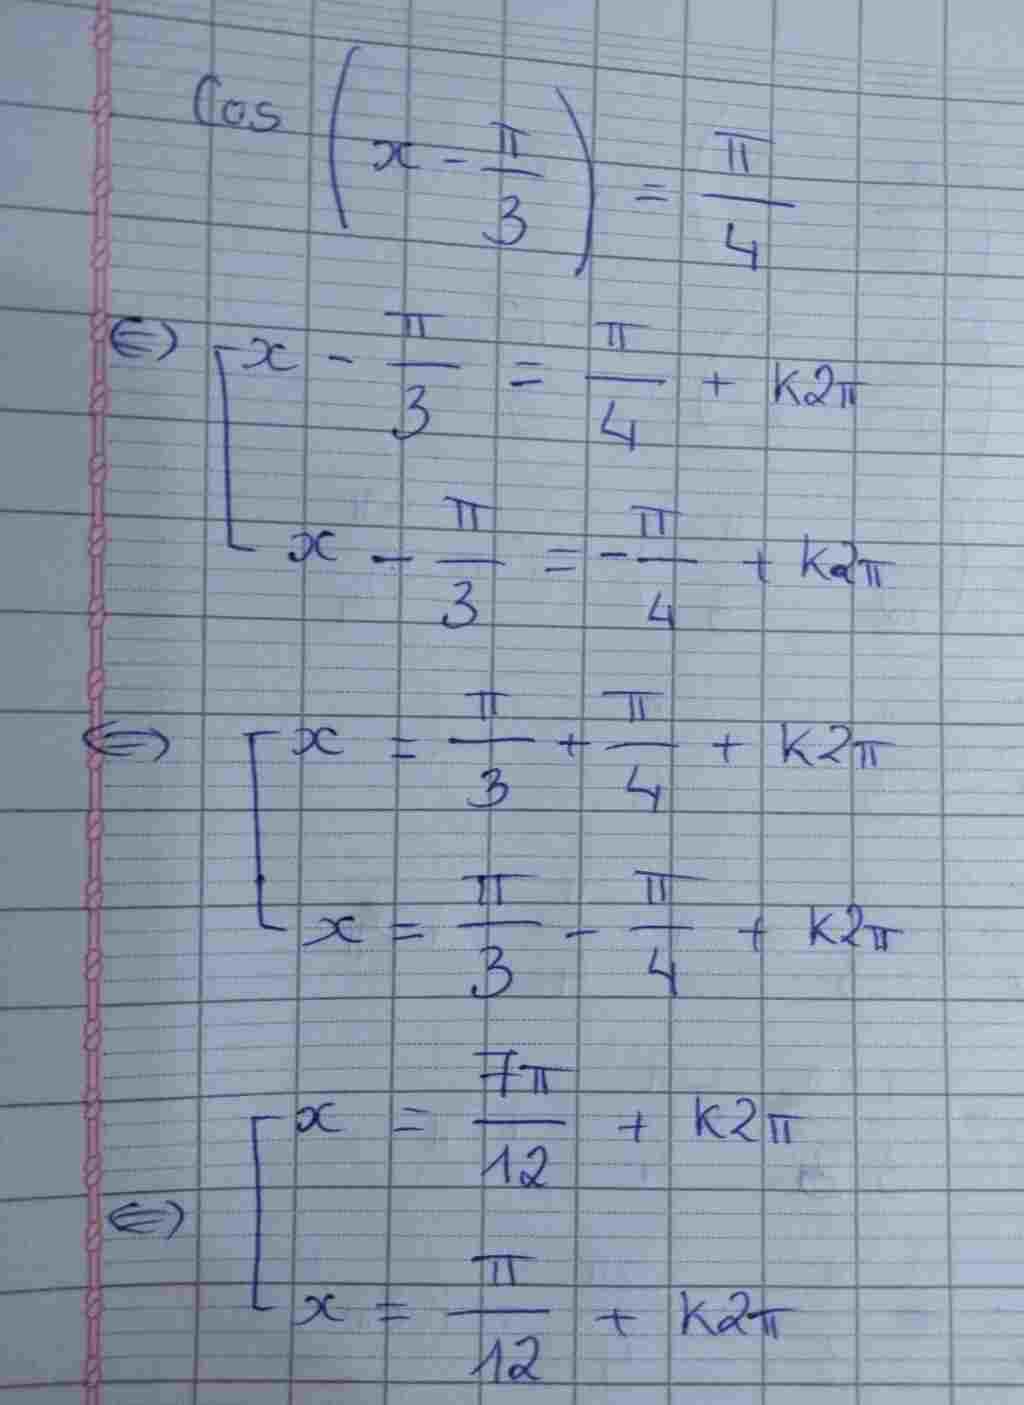 Cos (x - π/3) = π/4
⇔ [ x - π/3 = π/4 + k2π
x - π/3 = -π/4 + k2π
⇔ [ x = π/3 + π/4 + k2π
x = π/3 - π/4 + k2π
⇔ [ x = 7π/12 + k2π
x = π/12 + k2π